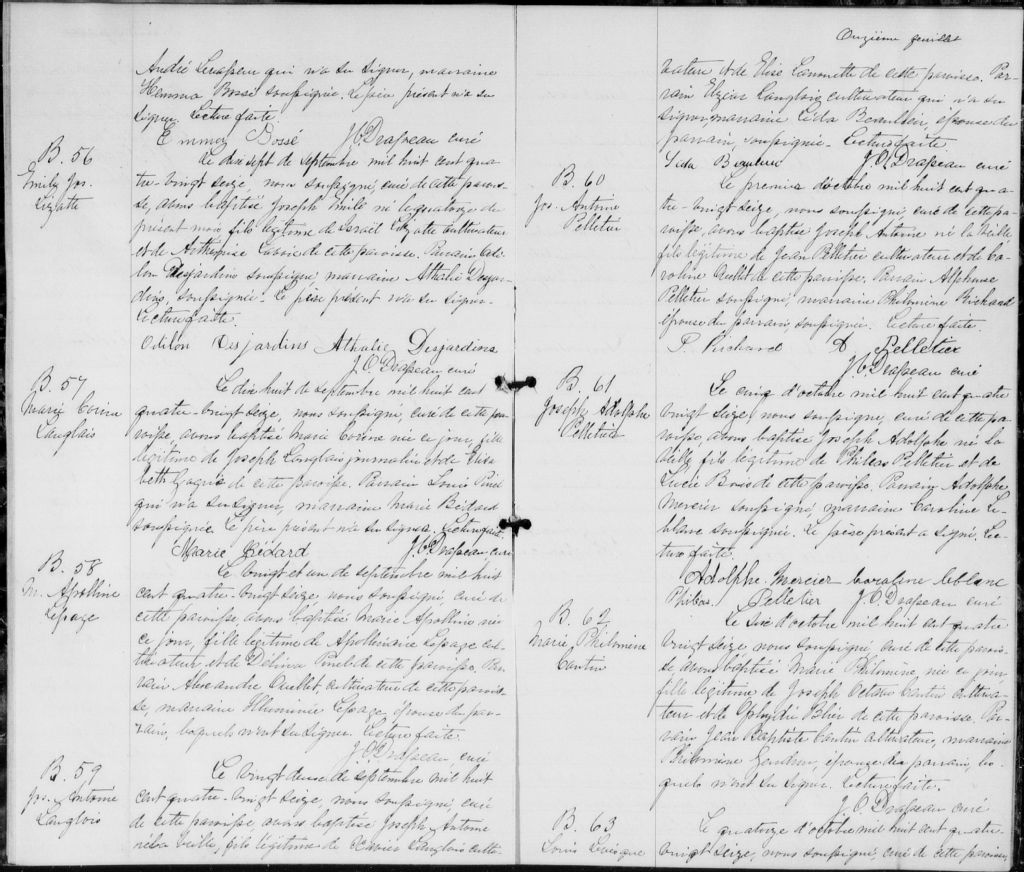 André Drapeau qui n'a su signer, marraine
Hemma Bossé soussignée. Le père présent n'a su
signer. Lecture faite.
Emma Bossé J.O. Drapeau curé
B. 56
Emily Jos.
Lizotte
Le dix sept de septembre mil huit cent qua-
tre-vingt seize, nous soussigné, curé de cette parois-
se, avons baptisé Joseph Emile né le quatorze du
présent mois fils légitime de Israël Lizotte cultivateur
et de Lavoie de cette paroisse. Parrain Odi-
lon Desjardins soussigné marraine Athalie Desjar-
dins, soussignée. Le père présent n'a su signer.
Lecture faite.
Odilon Desjardins Athalie Desjardins
J.O. Drapeau curé
B. 57
Marie Corine
Langlais
Le dix huit de septembre mil huit cent
quatre-vingt seize, nous soussigné, curé de cette pa-
roisse, avons baptisé Marie Corine née ce jour, fille
légitime de Joseph Langlais journalier et de Elisa-
beth Gagné de cette paroisse. Parrain Louis Pinel
qui n'a su signer, marraine Marie Bédard
soussignée. Le père présent n'a su signer. Lecture faite.
Marie Bédard J.O. Drapeau curé
B. 58
M. Apolline
Lepage
Le vingt et un de septembre mil huit
cent quatre-vingt seize, nous soussigné, curé de
cette paroisse avons baptisé Marie Apolline née
ce jour, fille légitime de Apollinaire Lepage cul-
tivateur et de Delvina Pinel de cette paroisse. Par-
rain Alexandre Ouellet, cultivateur de cette parois-
se, marraine Illuminée Lepage, épouse du par-
rain, lesquels n'ont su signer. Lecture faite.
J.O. Drapeau curé
B. 59
Jos. Antoine
Langlois
Le vingt deux de septembre mil huit
cent quatre-vingt seize, nous soussigné, curé
de cette paroisse avons baptisé Joseph Antoine
né la veille, fils légitime de Xavier Langlois culti-
Onzième feuillet
vateur et de Elise Cannette de cette paroisse. Par-
rain Elzéar Langlois cultivateur qui n'a su
signer marraine Léda épouse du
parrain, soussignée. Lecture faite.
Léda J.O. Drapeau curé
B. 60
Jos. Antoine
Pelletier
Le premier d'octobre mil huit cent qua-
tre-vingt seize, nous soussigné, curé de cette pa-
roisse, avons baptisé Joseph Antoine né la veille
fils légitime de Jean Pelletier cultivateur et de Ca-
roline Ouellet de cette paroisse. Parrain Alphonse
Pelletier soussigné, marraine Philomène Richard
épouse du parrain, soussignée. Lecture faite.
P. Richard A Pelletier
J.O. Drapeau curé
B. 61
Joseph Adolphe
Pelletier
Le cinq d'octobre mil huit cent quatre
vingt seize, nous soussigné, curé de cette pa-
roisse, avons baptisé Joseph Adolphe né la
veille fils légitime de Philéas Pelletier et de
Lucie Bois de cette paroisse. Parrain Adolphe
Mercier soussigné, marraine Caroline Le-
blanc soussignée. Le père présent a signé. Lec-
ture faite.
Adolphe Mercier Caroline leblanc
Philéas Pelletier J.O. Drapeau curé
B. 62
Marie Philomène
Cantin
Le six d'octobre mil huit cent quatre
vingt seize nous soussigné, curé de cette parois-
se avons baptisé Marie Philomène, née ce jour
fille légitime de Joseph Octave Cantin cultiva-
teur et de Blier de cette paroisse. Par-
rain Jean Baptiste Cantin cultivateur, marraine
Philomène Gendron, épouse du parrain, les-
quels n'ont su signer. Lecture faite.
J.O. Drapeau curé
B. 63
Louis Levesque
Le quatorze d'octobre mil huit cent quatre
vingt seize, nous soussigné, curé de cette paroisse,